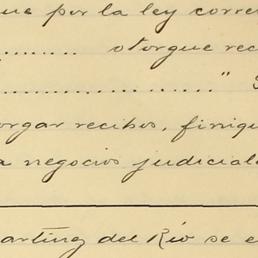 que por la ley corre
........ otorgue rec
.................."
orgar recibos, finiqu
a negocios judicial
artinz del Río se e